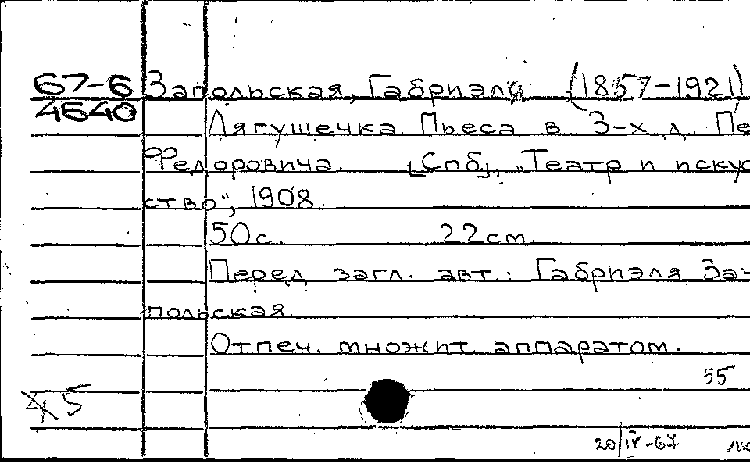 67-6 Запольская, Габриэля (1857-1921)
4640 Лягушечка. Пьеса в 3-х д. Пе
Федоровича. [Спб], „Театр и искус
ство", 1908.
50с. 22см.
Перед загл. авт.: Габриэля За-
польская.
Отпеч. множит. аппаратом.
55
45
20/IV-67